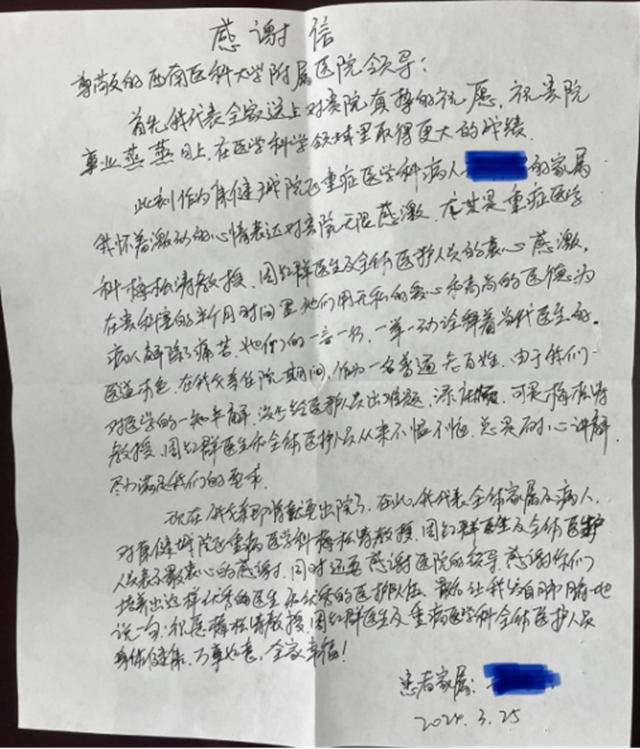 感谢信
尊敬的西南医科大学附属医院领导:
首先我代表全家送上对贵院真挚的祝愿,祝贵院
事业蒸蒸日上,在医学科学领域里取得更大的成绩.
此刻作为康健城院区重症医学科病人 的家属
我怀着激动的心情表达对贵院无限感激,尤其是重症医学
科梅松涛教授、周红群医生及全体医护人员的衷心感激,
在贵科室的半个月时间里他们用无私的爱心和高尚的医德为
病人解除了痛苦,她们的一言一行,一举一动诠释着当代医生的
医道本色,在我父亲住院期间,作为一名普通老百姓,由于我们
对医学的一知半解,没少给医护人员出难题,添麻烦,可是梅松涛
教授、周红群医生和全体医护人员从来不愠不恼,总是耐心讲解,
尽力满足我们的要求.
现在我父亲即将就要出院了,在此,我代表全体家属及病人,
对康健城院区重病医学科梅松涛教授、周红群医生及全体医护
人员表示最衷心的感谢,同时还要感谢医院的领导,感谢你们
培养出这样优秀的医生和优秀的医护队伍,最后让我发自肺腑地
说一句:祝愿梅松涛教授、周红群医生及重病医学科全体医护人员
身体健康,万事如意,全家幸福!
患者家属:
2024.3.25